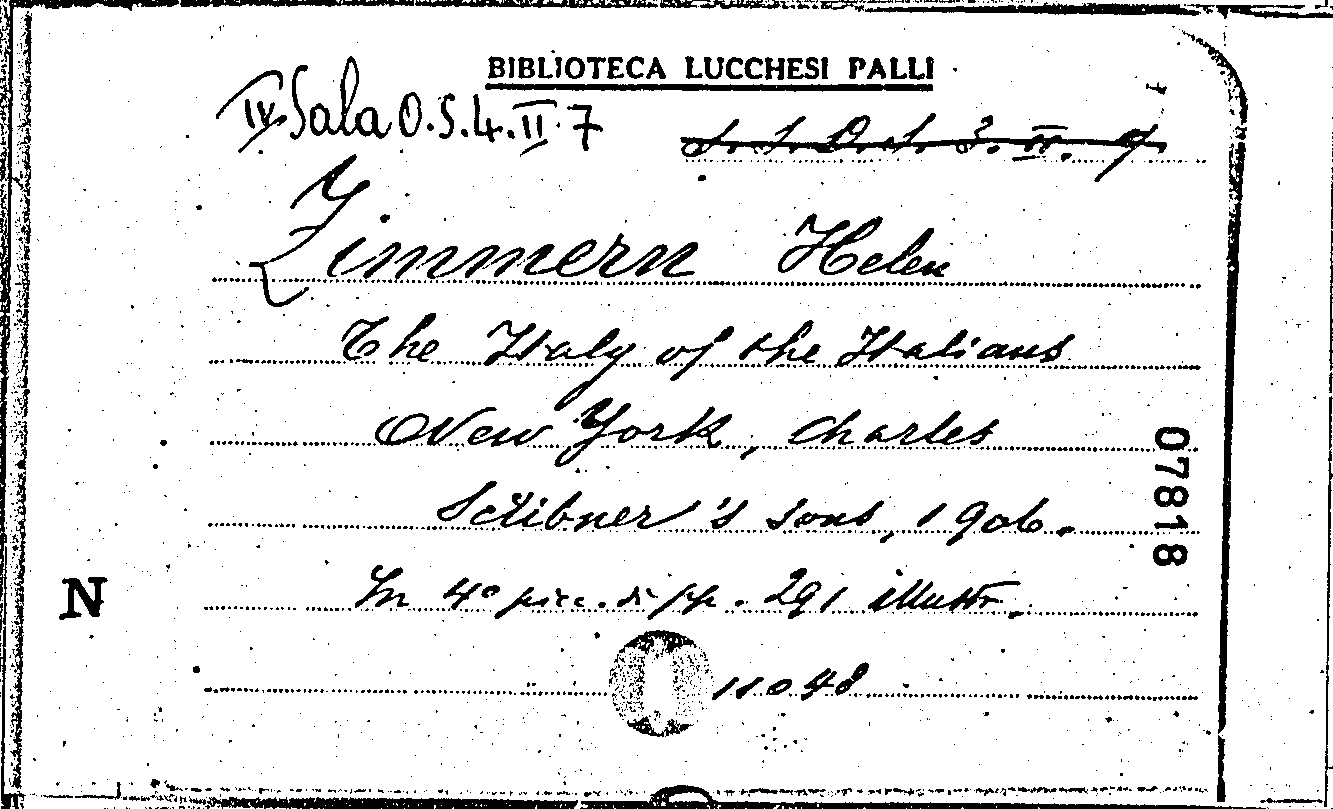 BIBLIOTECA LUCCHESI PALLI
IV Sala O.S.4.II.7
3. II. 9
Zimmern Helen
The Italy of the Italians
New York, Charles
Scribner's sons, 1906.
In 4° picc. di pp. 291 illustr.
11048
07818
N